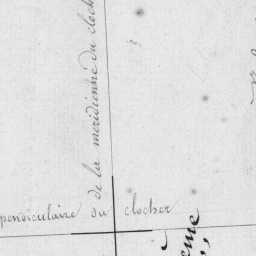 de la meridienne du cloch
pendiculaire du clocher
eme